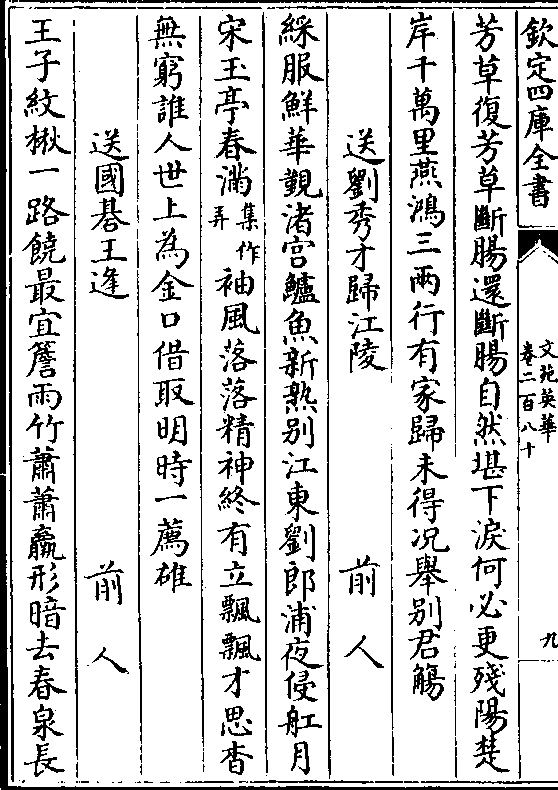 欽定四庫全書
文苑英華
卷二百八十
九
芳草復芳草斷腸還斷腸自然堪下淚何必更殘陽楚
岸千萬里燕鴻三兩行有家歸未得况舉别君觴
送劉秀才歸江陵 前人
綵服鮮華覲渚宫鱸魚新熟别江東劉郎浦夜侵舡月
宋玉亭春滿集作弄袖風落落精神終有立飄飄才思杳
無窮誰人世上為金口借取明時一薦雄
送國碁王逢 前人
王子紋楸一路饒最宜簷雨竹蕭蕭羸形暗去春泉長